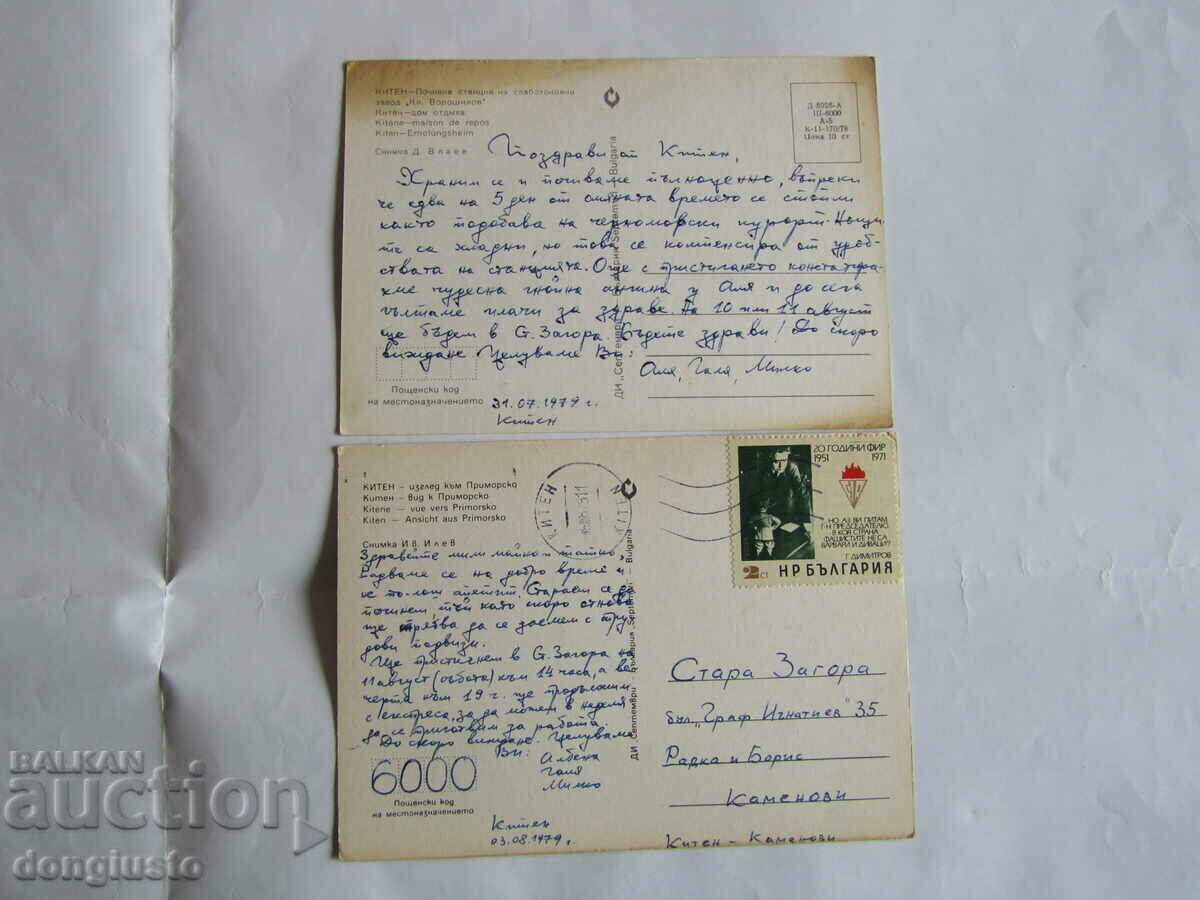 КИТЕН — Почивна станция на слаботоковия
завод „Кл. Ворошилов"
Китен — дом отдыха
Kitène — maison de repos
Kiten — Erholungsheim
Снимка Д. Влаев
Д-8226-А
III-6000
А-5
К-11-170/79
Цена 10 ст.
ДИ „Септември" — България „Septemvri" — Bulgaria
Поздрави от Китен,
Храним се и почиваме пълноценно, въпреки
че едва на 5 ден от смяната времето се стопли
както подобава на черноморски курорт. Нощи
те са хладни, но това се компенсира от удоб-
ствата на станцията. Още с пристигането констатира-
хме чудесна гнойна ангина у Аля и до сега
гълтаме илачи за здраве. На 10 или 11 август
ще бъдем в С. Загора. Бъдете здрави! До скоро
виждане Целуваме Ви:
Аля, Галя, Милко
Пощенски код
на местоназначението
31.07.1979 г.
Китен
КИТЕН — изглед към Приморско
Китен — вид к Приморско
Kitène — vue vers Primorsko
Kiten — Ansicht aus Primorsko
Снимка Ив. Илев
КИТЕН
KITEN
20 ГОДИНИ ФИР
1951 1971
НО АЗ ВИ ПИТАМ,
Г-Н ПРЕДСЕДАТЕЛЮ,
В КОЯ СТРАНА
ФАШИСТИТЕ НЕ СА
ВАРВАРИ И ДИВАЦИ?
Г. ДИМИТРОВ
2 СТ
НР БЪЛГАРИЯ
Здравейте мили майко и татко,
Радваме се на добро време и
не по-лош апетит. Стараем се да
починем, тъй като скоро отново
ще трябва да се заемем с тру
дови подвизи.
Ще пристигнем в С. Загора на
11 август (събота) към 14 часа, а ве
черта към 19 ч. ще продължим
с експреса, за да можем в неделя
да се приготвим за работа.
До скоро виждане. Целуваме
Ви: Албена
Галя
Милко
ДИ „Септември" — България „Septemvri" — Bulgaria
6000
Пощенски код
на местоназначението
Китен
03.08.1979 г.
Стара Загора
бул. „Граф Игнатиев" 35
Радка и Борис
Каменови
Китен — Каменови
BALKAN
auction
dongiusto